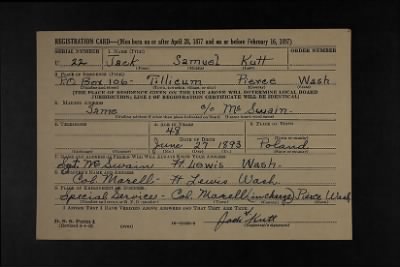 REGISTRATION CARD—(Men born on or after April 28, 1877 and on or before February 16, 1897)
SERIAL NUMBER 1. NAME (Print) ORDER NUMBER
U 22 Jack Samuel Kutt
(First) (Middle) (Last)
2. PLACE OF RESIDENCE (Print)
P.O Box 106 - Tillicum Pierce Wash
(Number and street) (Town, township, village, or city) (County) (State)
[THE PLACE OF RESIDENCE GIVEN ON THE LINE ABOVE WILL DETERMINE LOCAL BOARD
JURISDICTION; LINE 2 OF REGISTRATION CERTIFICATE WILL BE IDENTICAL]
3. MAILING ADDRESS
Same c/o McSwain
[Mailing address if other than place indicated on line 2. If same insert word same]
4. TELEPHONE 5. AGE IN YEARS 6. PLACE OF BIRTH
48
DATE OF BIRTH (Town or county)
June 27 1893 Poland
(Exchange) (Number) (Mo.) (Day) (Yr.) (State or country)
7. NAME AND ADDRESS OF PERSON WHO WILL ALWAYS KNOW YOUR ADDRESS
Sgt. McSwain Ft Lewis Wash.
8. EMPLOYER'S NAME AND ADDRESS
Col. Marell - Ft Lewis Wash
9. PLACE OF EMPLOYMENT OR BUSINESS
Special Service - Col. Marell (in charge) Pierce Wash
(Number and street or R. F. D. number) (Town) (County) (State)
I AFFIRM THAT I HAVE VERIFIED ABOVE ANSWERS AND THAT THEY ARE TRUE.
D. S. S. Form 1
Jack Kutt
(Registrant's signature)